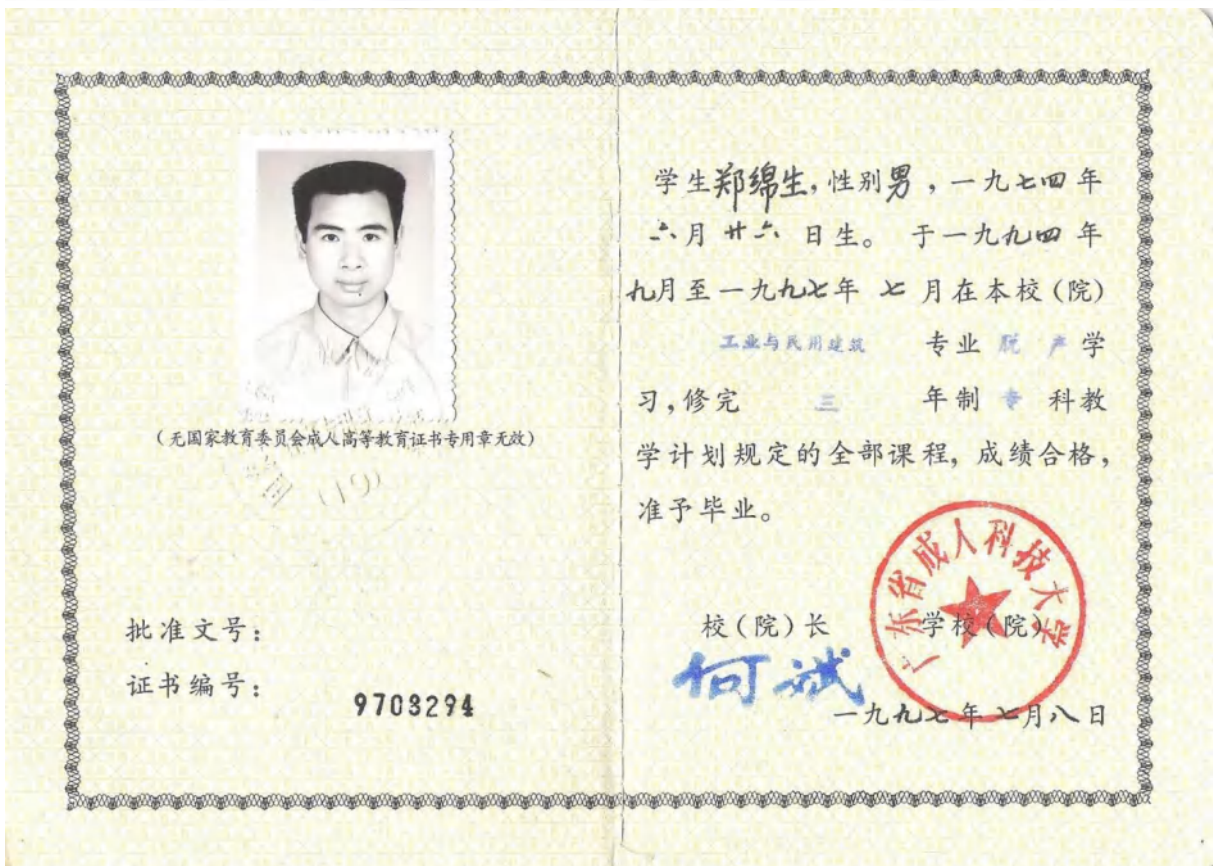 (无国家教育委员会成人高等教育证书专用章无效)
(19)
批准文号:
证书编号:
9703294
学生郑绵生,性别男,一九七四年
六月廿六日生。于一九九四年
九月至一九九七年七月在本校(院)
工业与民用建筑 专业 脱产学
习,修完 三 年制 专 科教
学计划规定的全部课程,成绩合格,
准予毕业。
广东省成人科技大学
校(院)长 学校(院)
何斌
一九九七年七月八日